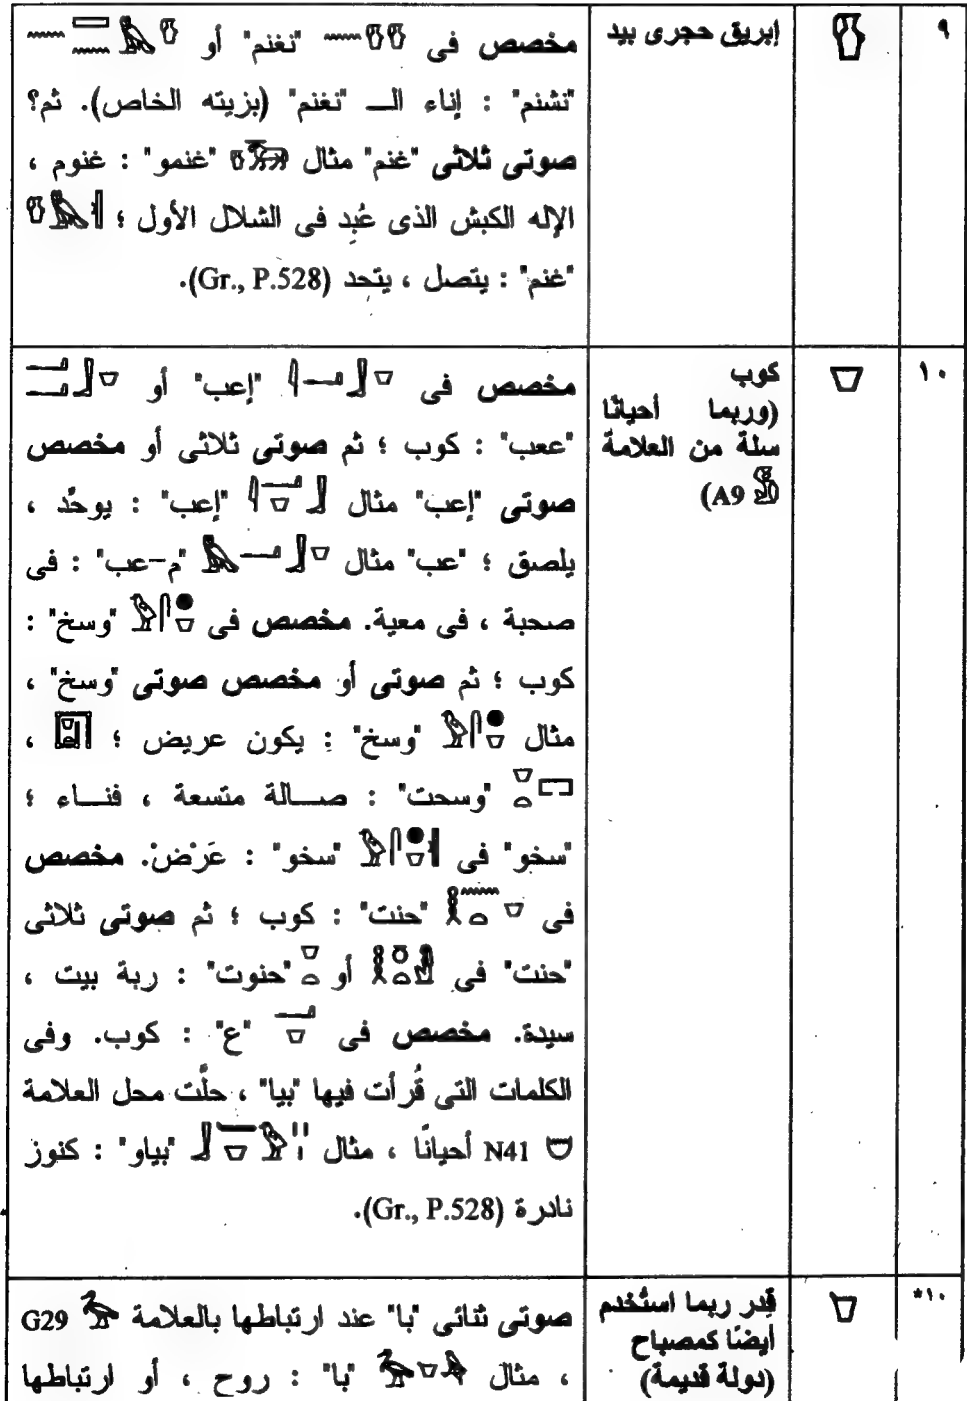 ٩
إبريق حجرى بيد
مخصص فى "نغنم" أو
"نشنم" : إناء الـــ "نغنم" (بزيته الخاص). ثم؟
صوتى ثلاثى "غنم" مثال "غنمو" : غنوم ،
الإله الكبش الذى عُبِد فى الشلال الأول ؛
"غنم" : يتصل ، يتحد (Gr., P.528).
١٠
كوب
(وربما أحيانًا
سلة من العلامة
A9)
مخصص فى "إعب" أو
"ععب" : كوب ؛ ثم صوتى ثلاثى أو مخصص
صوتى "إعب" مثال "إعب" : يوحَّد ،
يلصق ؛ "عب" مثال "م-عب" : فى
صحبة ، فى معية. مخصص فى "وسخ" :
كوب ؛ ثم صوتى أو مخصص صوتى "وسخ" ،
مثال "وسخ" : يكون عريض ؛ ،
"وسحت" : صـــالة متسعة ، فنـــاء ؛
"سخو" فى "سخو" : عَرْضْ. مخصص
فى "حنت" : كوب ؛ ثم صوتى ثلاثى
"حنت" فى أو "حنوت" : ربة بيت ،
سيدة. مخصص فى "ع" : كوب. وفى
الكلمات التى قُرأت فيها "بيا" ، حلَّت محل العلامة
N41 أحيانًا ، مثال "بياو" : كنوز
نادرة (Gr., P.528).
١٠*
قِدر ربما استُخدم
أيضًا كمصباح
(دولة قديمة)
صوتى ثنائى "با" عند ارتباطها بالعلامة G29
، مثال "با" : روح ، أو ارتباطها